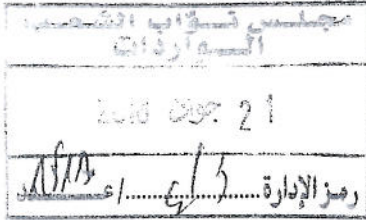 مجلس نواب الشعب
الواردات
21 جوان 2016
رمز الإدارة ......../عـــدد